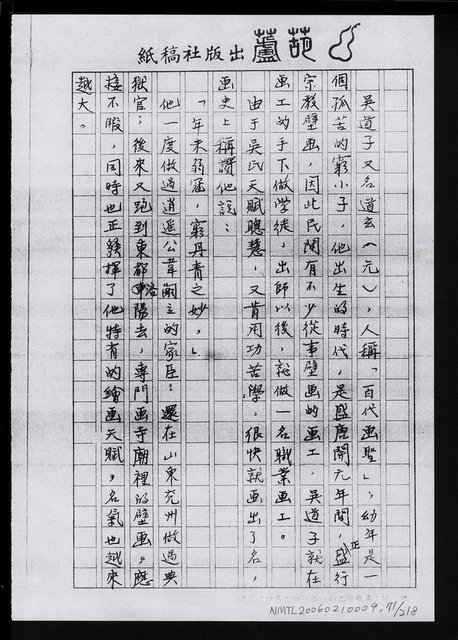 葫蘆出版社稿紙
吳道子又名道玄(元),人稱「百代画聖」,幼年是一
個孤苦的窮小子,他出生的時代,是盛唐開元年間,正盛行
宗教壁画,因此民間有不少從事壁画的画工,吳道子就在
画工的手下做学徒,出師以後,就做一名職業画工。
由于吳氏天賦聰慧,又肯用功苦學,很快就画出了名,
画史上稱讚他說:
「年未弱冠,窮丹青之妙。」
他一度做過逍遥公韋嗣立的家臣;還在山東兖州做過典
獄官;後來又跑到東都洛陽去,專門画寺廟裡的壁画。應
接不暇,同時也正發揮了他特有的繪画天賦,名氣也越來
越大。
NMTL20060210009, 71/218